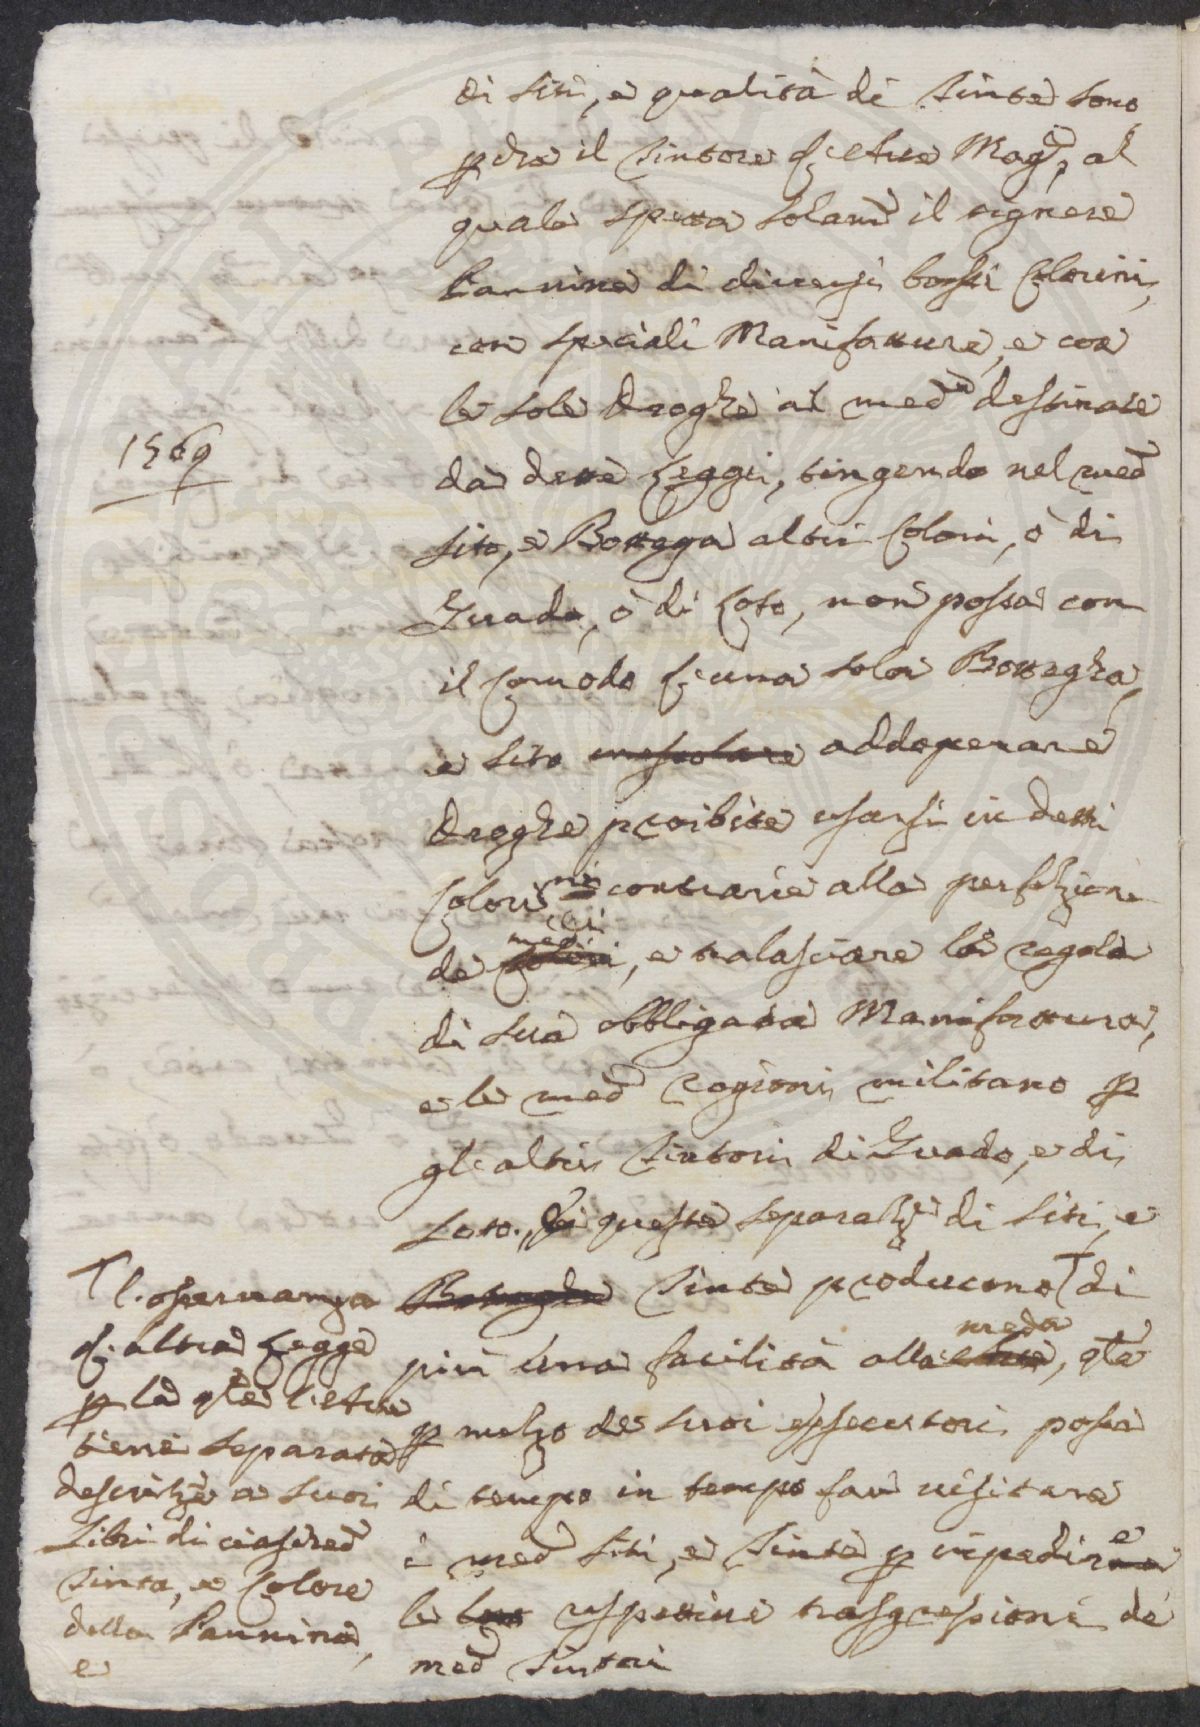 di siti, e qualità di tinte sono
p che il tintore d'Arte Magre, al
quale spetta solamte il tignere
Pannine di diversi bassi Colorini,
con speciali Manifatture, e con
le sole Droghe al medmo destinate
da dette Leggi, tingendo nel med
sito, e Bottega altri Colori, ò di
Guado, ò di Loto, non possa con
il Comodo d'una sola Bottegha,
e sito mescolare addoperare
Droghe proibite usarsi in detti
Colori, contrarie alla perfezione
de medmi, e tralasciare la regola
di sua obbligata Manifattura,
e le med ragioni militano p
gl'altri Tintori di Guado, e di
Loto. queste separazni di siti, e
Botteghe Tinte producono di
più una facilità alla meda, qle
p mezzo de suoi essecutori possa
di tempo in tempo far visitare
i med siti, e Tinte p impedire
le loro respettive trasgressioni de
med Tintori
1569
l'osservanza
d'altra Legge
p la qle l'Arte
tiene separata
descrizne a suoi
Libri di ciasched
Tinta, e Colore
della Pannina,
e